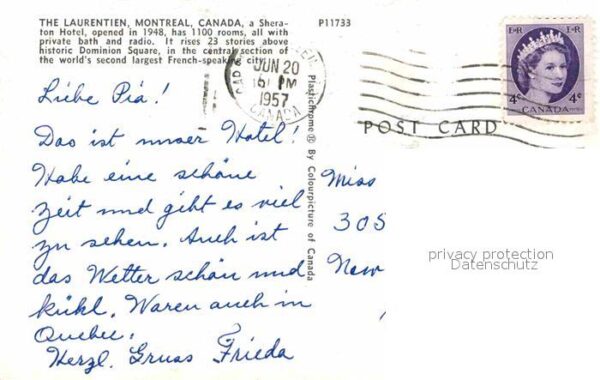 THE LAURENTIEN, MONTREAL, CANADA, a Shera-
ton Hotel, opened in 1948, has 1100 rooms, all with
private bath and radio. It rises 23 stories above
historic Dominion Square, in the central section of
the world's second largest French-speaking city.
P11733
JUN 20
PM
1957
CANADA
E II R
E II R
4¢
4¢
CANADA
POST CARD
Plastichrome ® By Colourpicture of Canada
Liebe Pia!
Das ist unser Hotel!
Habe eine schöne
Zeit und giht es viel
zu sehen. Auch ist
das Wetter schön und
kühl. Waren auch in
Quebec.
Herzl. Gruss Frieda
Miss
305
New
privacy protection
Datenschutz